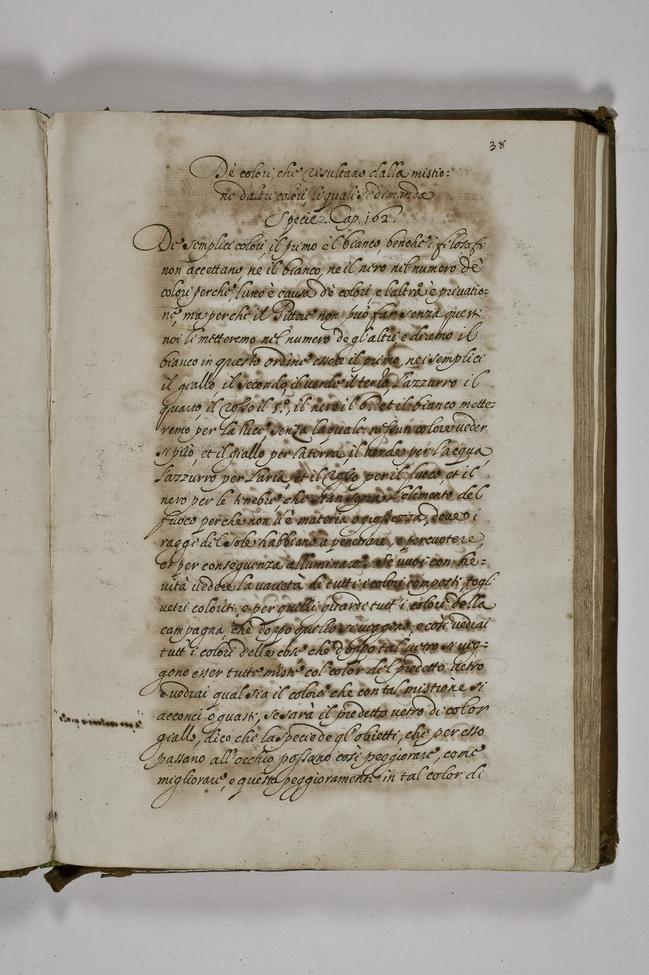 38
De colori, che resultano dalla mistio:
ne d'altri colori, li quali si dimanda
Specie. Cap. 162.
De semplici colori, il primo è l bianco, benche i filosofi
non accettano, ne il bianco, ne il nero nil numero dè
colori perche l'uno è causa dè colori e l'altro è privatio:
ne, ma perche il Pittore non può far senza questi
noi li metteremo nil numero de gl'altri e diremo il
bianco in questo ordine essere il primo, nei semplici
il giallo il secondo, il verde il terzo, l'azzurro il
quarto, il rosso il 5.º, il nero il 6.º et il bianco mette:
remo per la luce senza la quale nessun colore veder
si può, et il giallo per la terra, il verde per l'acqua
l'azzurro per l'aria, et il rosso per il fuoco, et il
nero per le tenebre, che stan sopra l'elemento del
fuoco perche non v'è materia o grossezza, dove i
raggi del Sole habbiano a penetrare, e percuotere,
et per consequenza alluminare. Se vuoi con bre:
vità vedere la varietà di tutti i colori composti, togli
vetri coloriti, e per quelli guarda tutt'i colori della
campagna, che doppo quello si veggono, e così vedrai
tutt'i colori delle cose che doppo tal vetro si veg:
gono esser tutte miste col color del predetto vetro
e vedrai qual sia il colore che con tal mistione si
acconci o guasti, se sarà il predetto vetro di color
giallo, dico che la specie de gl'obietti, che per esso
passano all'occhio possano così peggiorare, come
migliorare, e questo peggioramento in tal color di